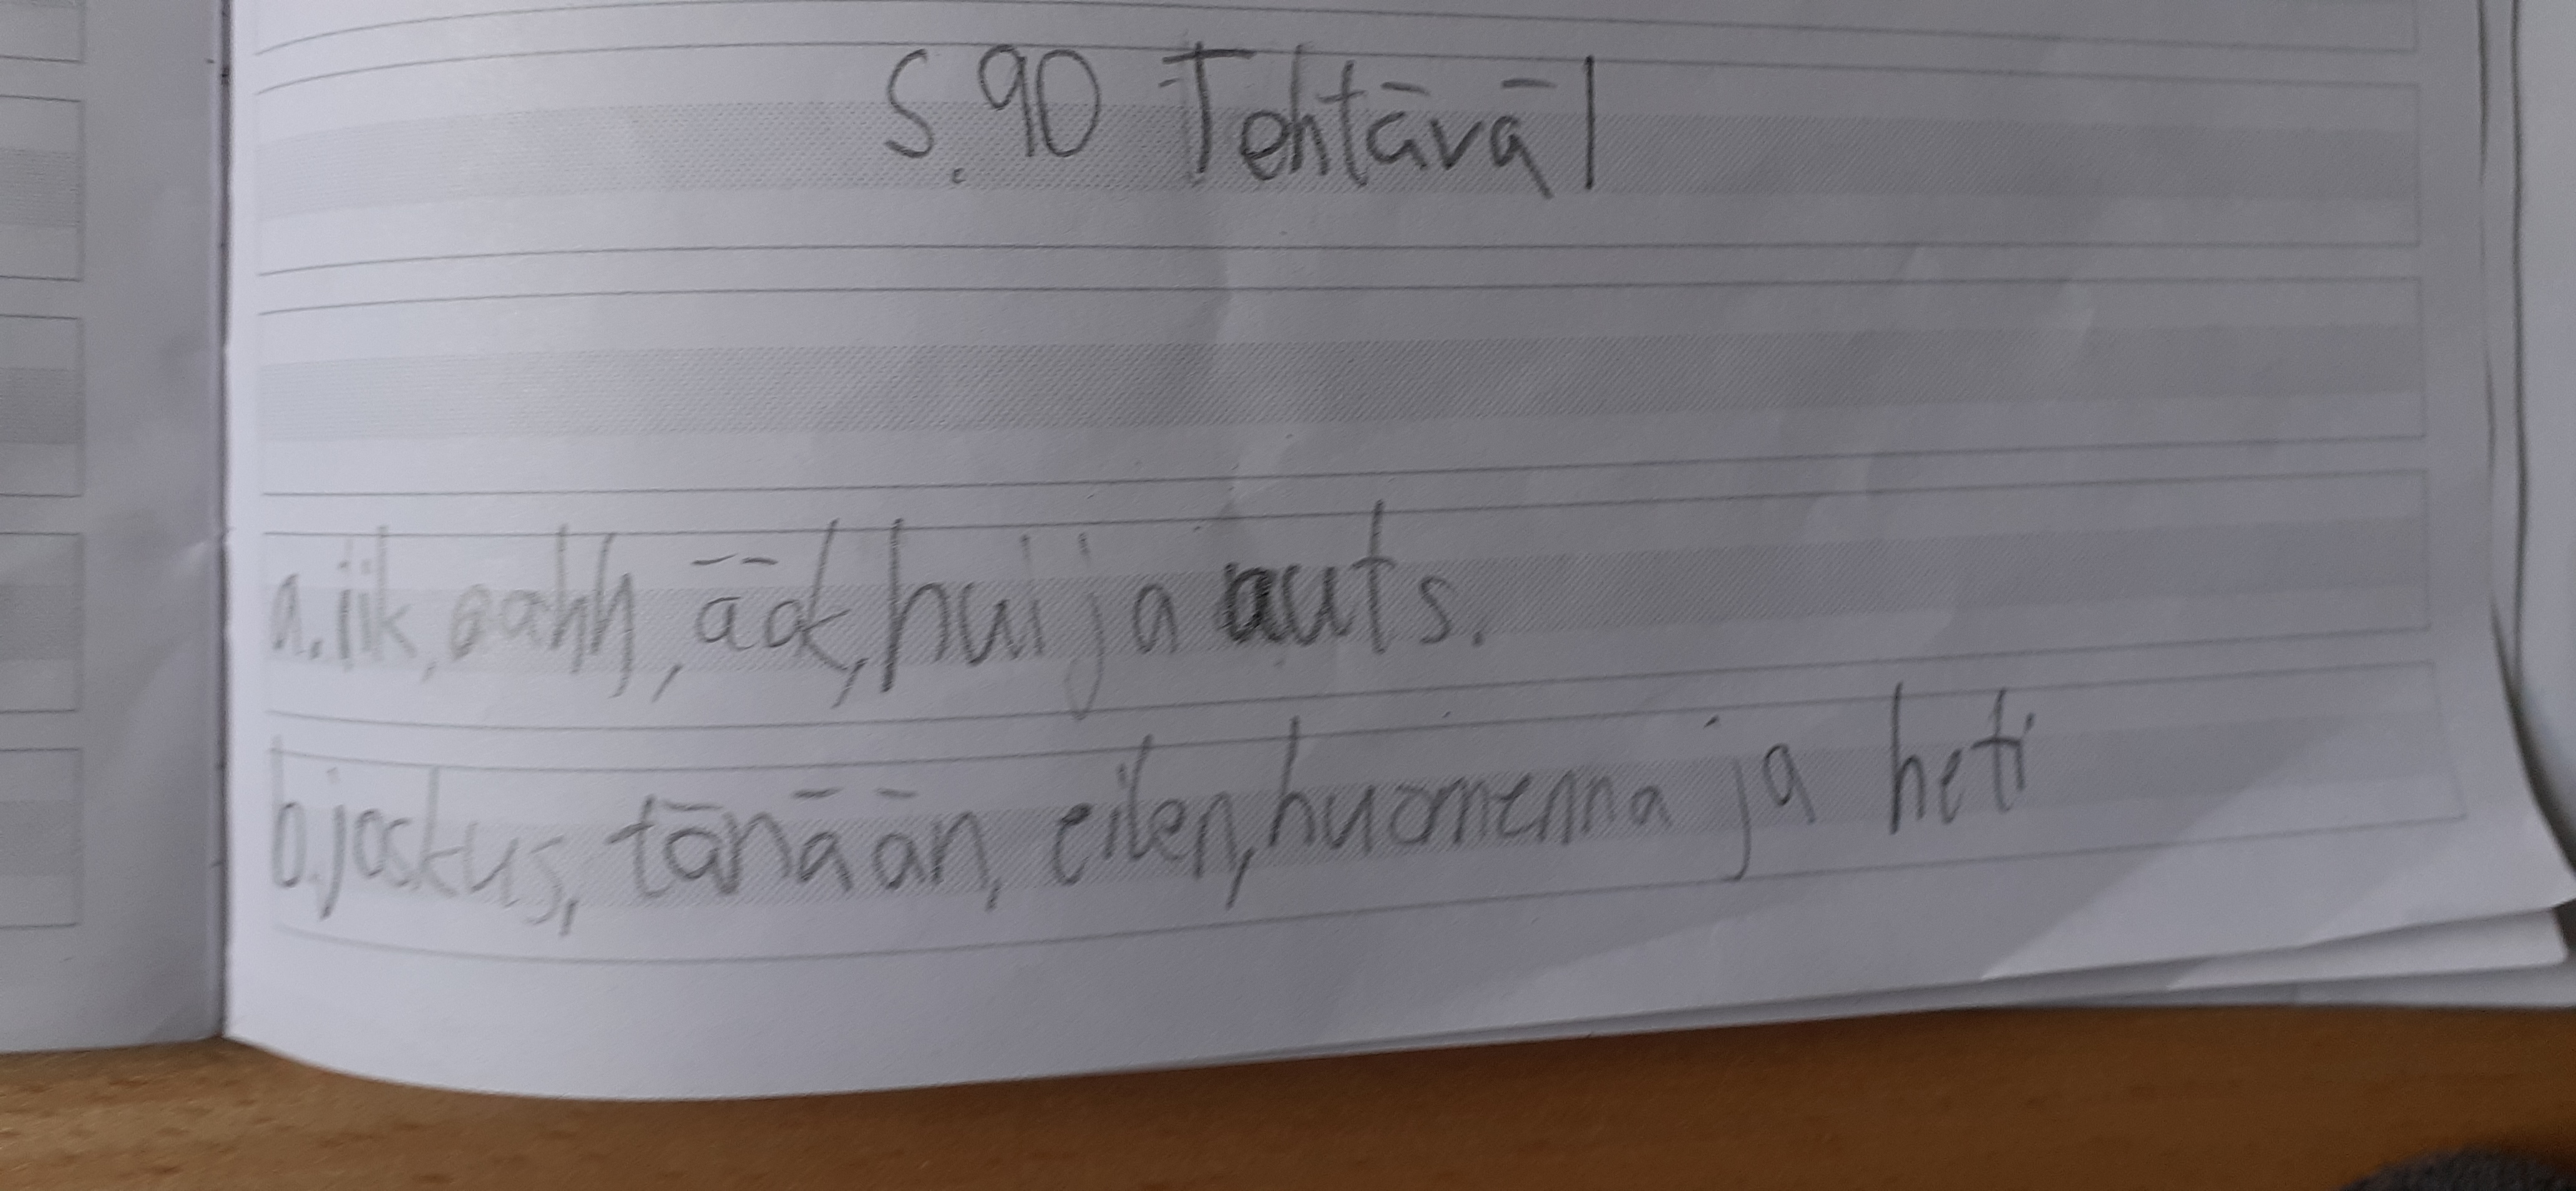 S.90 Tehtävä 1
a. iik, aahh, ääk, hui ja auts.
b. joskus, tänään, eilen, huomenna ja heti